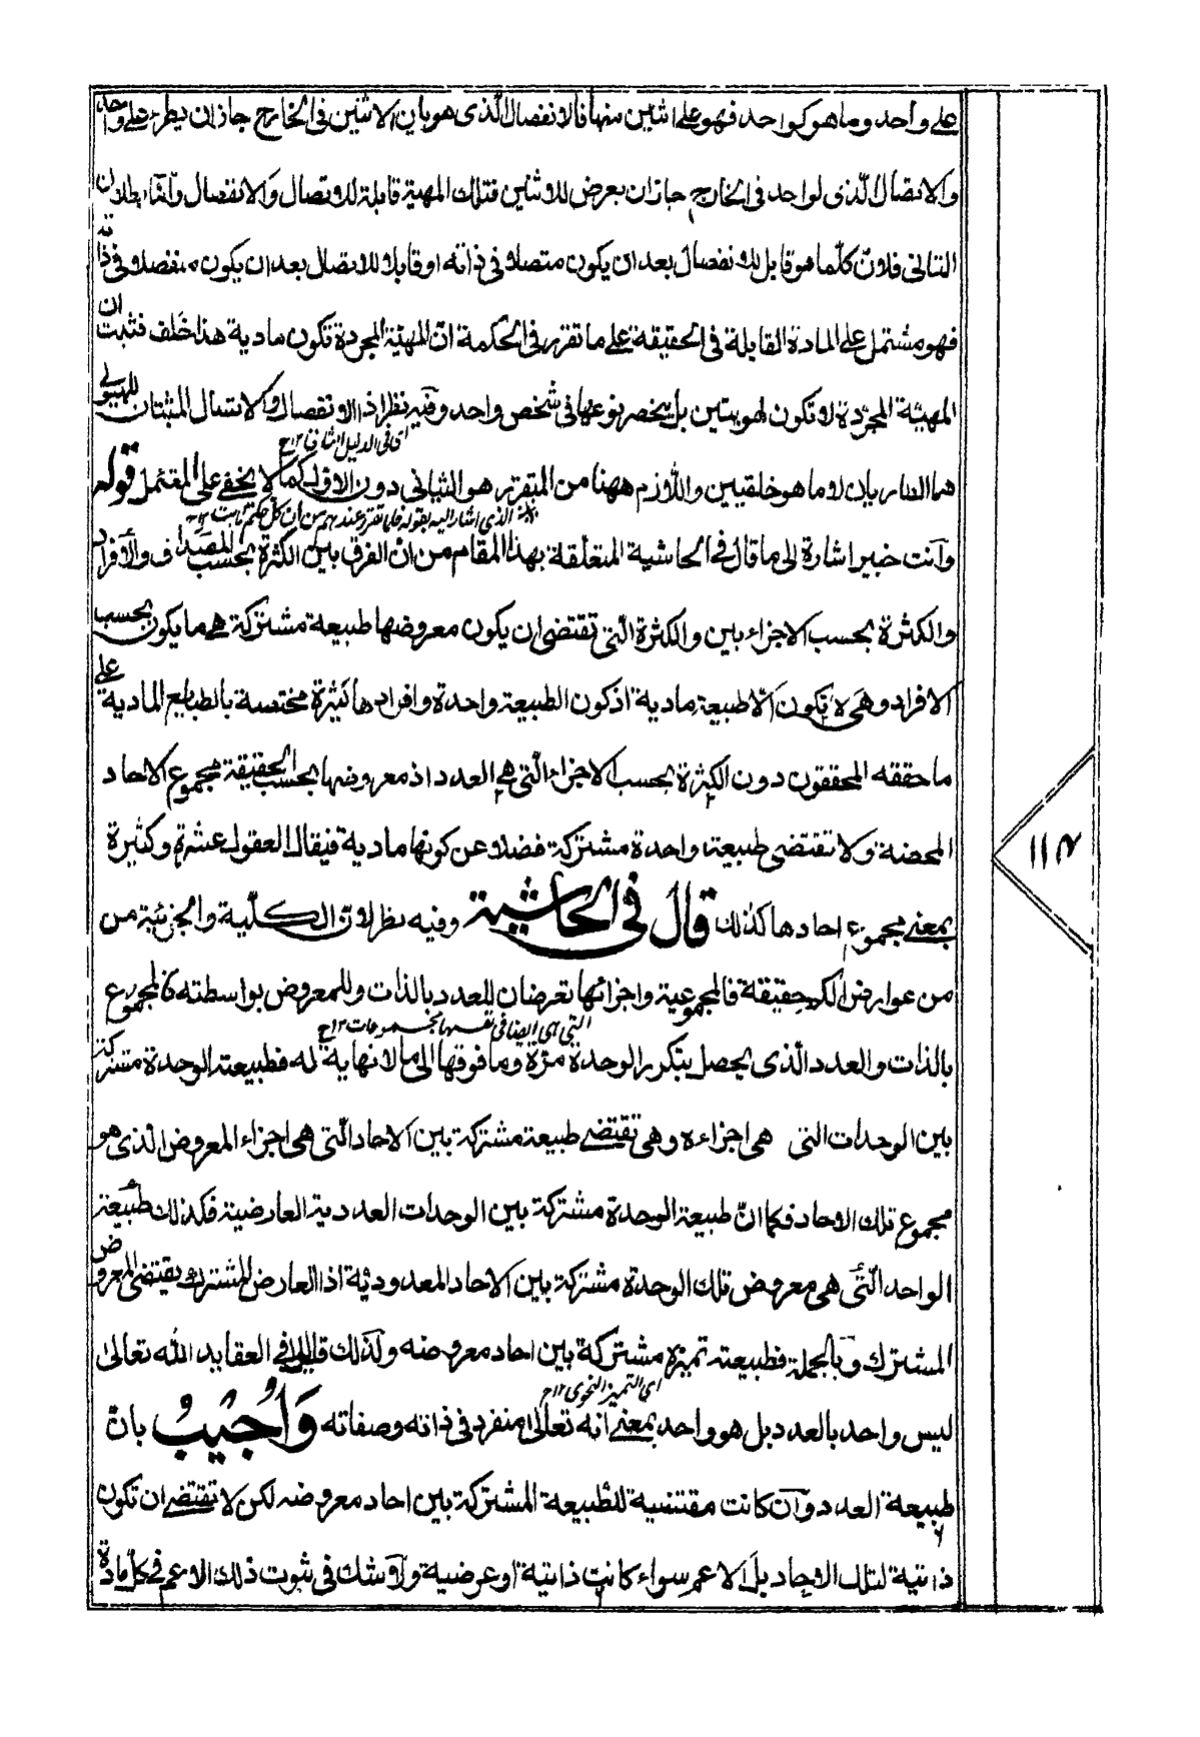 على واحد وما هو كواحد فهو على اثنين منها فالانفصال الذى هو بان الاثنين فى الخارج جاز ان يطرء على واحد
والاتصال الذى لواحد فى الخارج جاز ان يعرض للاثنين فتلك المهية قابلة للاتصال والانفصال وامّا بطلان
التالى فلانّ كلّما هو قابل للانفصال بعد ان يكون متصلا فى ذاته او قابلا للاتصال بعد ان يكون منفصلا فى ذاته
فهو مشتمل على المادة القابلة فى الحقيقة على ما تقرر فى الحكمة انّ المهيّة المجردة تكون مادية هذا خلف فثبت ان
المهيّة المجرّدة لا تكون لهويتين بل ينحصر نوعها فى شخص واحد وفيه نظر اذ الانفصال والاتصال المثبتان للهيولى
اى فى الدليل الثانى ١٢ ح
هما الطاريان لا ما هو خلقيين واللازم ههنا من المتقرر هو الثانى دون الاول كما لا يخفى على المتأمل قوله
الذى اشار اليه بقوله فلما تقرر عندهم من ان كل حكم ثابت ١٢
وانت خبير اشارة الى ما قال فى الحاشية المتعلقة بهذا المقام من ان الفرق بين الكثرة بحسب المصداق والافراد
والكثرة بحسب الاجزاء بين والكثرة الّتى تقتضى ان يكون معروضها طبيعة مشتركة هى ما يكون بحسب
الافراد وهى لا تكون الّا طبيعة مادية اذ كون الطبيعة واحدة وافرادها كثيرة مختصة بالطبايع المادية على
ما حققه المحققون دون الكثرة بحسب الاجزاء الّتى هى العدد اذ معروضها بحسب الحقيقة مجموع الاحاد
المحضة ولا تقتضى طبيعة واحدة مشتركة فضلا عن كونها مادية فيقال العقول عشرة وكثيرة
بمعنى مجموع احادها كذلك قال فى الحاشية وفيه نظر لانّ الكلّية والجزئية من
من عوارض الكم حقيقة فالمجموعية واجزائها تعرضان للعدد بالذات وللمعروض بواسطته فالمجموع
التى هى ايضا فى نفسها مجموعات ١٢ ح
بالذات والعدد الذى يحصل بتكرر الوحدة مرّة وما فوقها الى ما لا نهاية له فطبيعة الوحدة مشتركة
بين الوحدات التى هى اجزاءه وهى تقتضى طبيعة مشتركة بين الاحاد الّتى هى اجزاء المعروض الذى هو
مجموع تلك الاحاد فكما انّ طبيعة الوحدة مشتركة بين الوحدات العددية العارضية فكذلك طبيعة
الواحد الّتى هى معروض تلك الوحدة مشتركة بين الاحاد المعدودية اذ العارض المشترك يقتضى المعروض
المشترك وبالجملة فطبيعة تميزه مشتركة بين احاد معروضه ولذلك قيل فى العقايد الله تعالى
اى التميز النحوى ١٢ ح
ليس واحد بالعدد بل هو واحد بمعنى انه تعالى منفرد فى ذاته وصفاته وَاُجِيْبُ بانّ
طبيعة العدد وان كانت مقتضية للطبيعة المشتركة بين احاد معروضه لكن لا تقتضى ان تكون
ذاتية لتلك الاحاد بل الاعم سواء كانت ذاتية او عرضية ولا شك فى ثبوت ذلك الاعم فى كلّ مادة